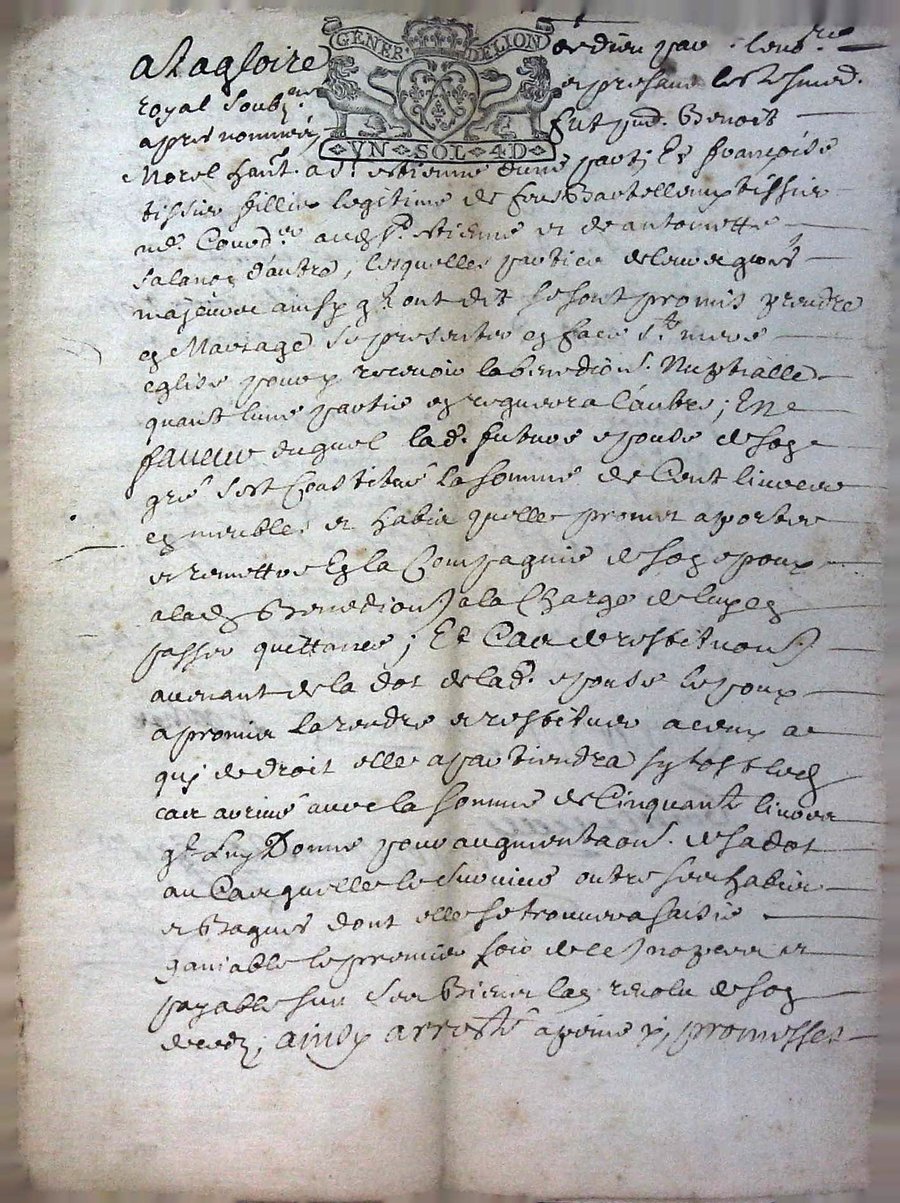 GENER DELION
VN SOL 4D
a La gloire de dieu par
royal soub.né et presans les tesmed.
apres nommés, fut pnd. Benoit
Morel hant. a st. estienne d'une part; Et francoise
tissier fillie legitime de feu Bartellemy tissier
md. Courd.r aud st. estienne et de antoinette
Salanon d'autre, lesquelles parties de leur grés
majeure ainsy qt. ont dit se sont promis prendre
en Mariage se presenter en face ste. mere
eglise pour y recevoir la benedion. Nuptialle
quant l'une partie en requerra l'autre; En
faveur duquel lad. future epouse de son
gré s'est Constitué la somme de Cent livres
en meubles et habis quelle promet aporter
et remettre En la Compagnie de son epoux
a lad Benediction a la Charge de luy en
passer quittance; Et Cas de restitution
avenant de la dot de lad. epouse lepoux
a promis la rendre et restituer a ceux a
qui de droit elle apartiendra sytost led
cas arrivé avec la somme de Cinquante livres
qt. Luy Donne pour augmentaon. de sa dot
au Cas quelle le survive outre ses habis
et Bagues dont elle se trouvera saisie
ganiable le premier soir de les nopces et
payable sur ses Biens lan revolu de son
deced; ainsy arresté a peine promesses